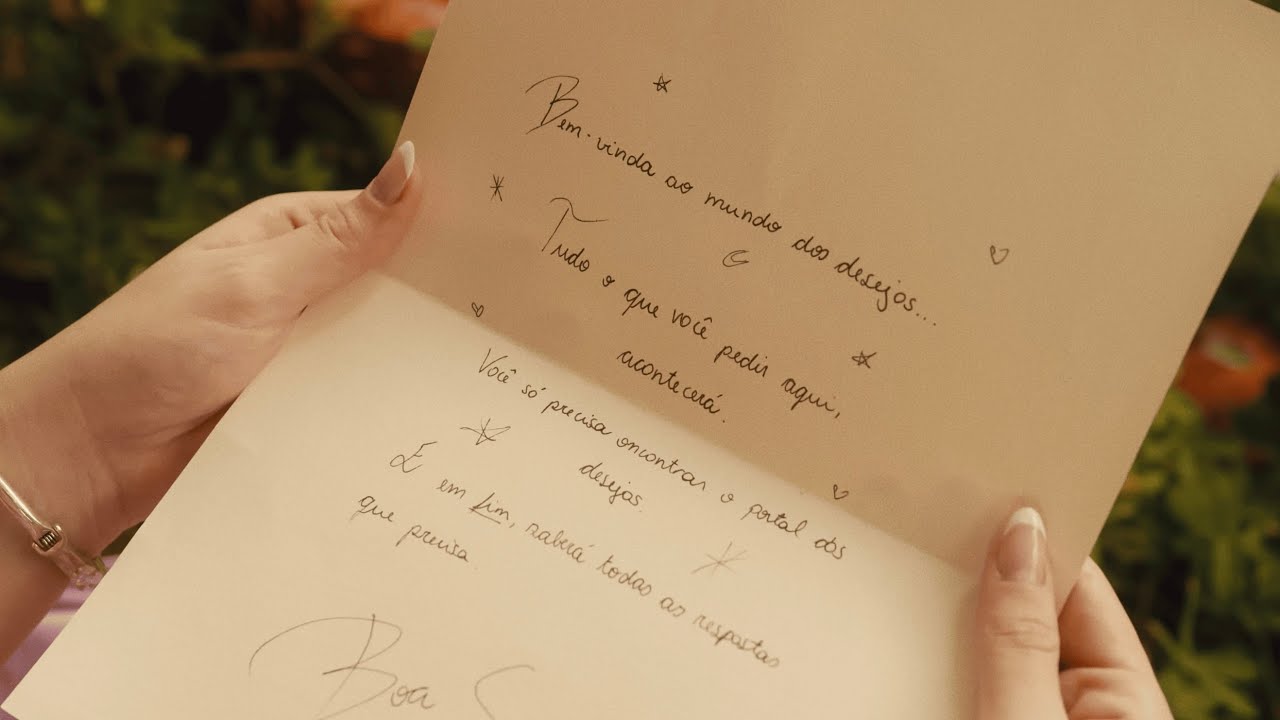 Bem-vinda ao mundo dos desejos...
Tudo o que você pedir aqui,
acontecerá.
Você só precisa encontrar o portal dos
desejos.
E em fim, saberá todas as respostas
que precisa.
Boa S